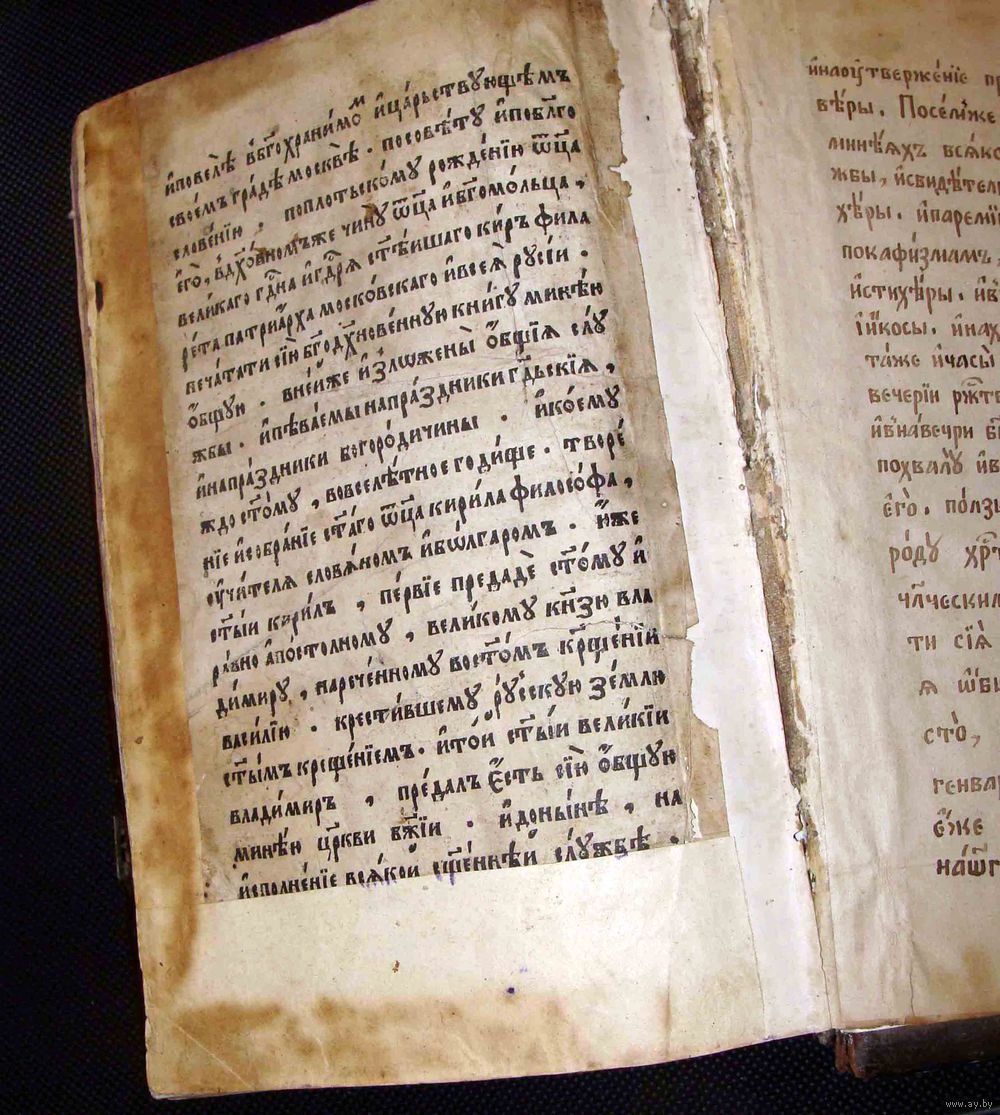 и҆повелѣ̀ вбг҃охрани́момъ и҆ца́рьствующемъ
свое́мъ гра́дѣ москвѣ̀. посовѣ́ту и҆побл҃го
слове́нїю. поплотьско́му рожде́нїю ѿц҃а
є҆го̀, вдх҃о́вномъже чи́ну ѿц҃а и҆бг҃омо́льца,
вели́каго гдⷭ҇на и҆гдⷭ҇ря ст҃ѣ́ишаго ки́ръ фила
ре́та патрїа́рха моско́вскаго и҆всея̀ ру́сїи.
печа́тати сїю̀ бг҃одх҃нове́нную кни́гу мине́ю
о҆́бщую. вне́йже и҆зложены̀ о҆́бщїя слу́
жбы. и҆пѣва́емы напра́здники гдⷭ҇ьскїя,
и҆напра́здники богоро́дичины. и҆кое́му
ждо ст҃о́му, вовселѣ́тное годи́ще. творе́
нїе и҆собра́нїе ст҃а́го ѿц҃а кири́ла фило́софа,
оу҆чи́теля словя́номъ и҆бо́лгаромъ. и҆́же
ст҃ы́и кири́лъ, пе́рвїе предадѐ ст҃о́му и҆
ра́вно а҆по́столному, вели́кому кн҃зю вла
ди́миру, нарече́нному востⷪ҇мъ крⷭ҇ще́нїи
васи́лїю. крести́вшему ру́сскую зе́млю
ст҃ы́мъ креще́нїемъ. и҆то́и ст҃ы́и вели́кїи
влади́миръ, преда́лъ є҆́сть сїю̀ о҆́бщую
мине́ю цр҃кви бж҃їи. и҆доны́нѣ, на
и҆сполне́нїе вся́кои сщ҃е́ннѣи слу́жбѣ.
и҆наоу҆твержде́нїе
вѣ́ры. Посе́мже
мине́яхъ всяко
жбы, и҆свидѣтел
хѣ́ры. и҆паремїи
покафи́змамъ,
и҆стихѣ́ры. и҆в
і҆и҆́косы. и҆нах
та́же и҆часы̀
вече́рїи ржⷭ҇т
и҆внаве́чри
похвалу̀ и҆в
є҆го̀. по́лзы
ро́ду хрⷭ҇т
чл҃ческим
ти сїя̀
я ѡ҆би
сто̀,
генва
є҆́же
на́ѿг
www.ay.by